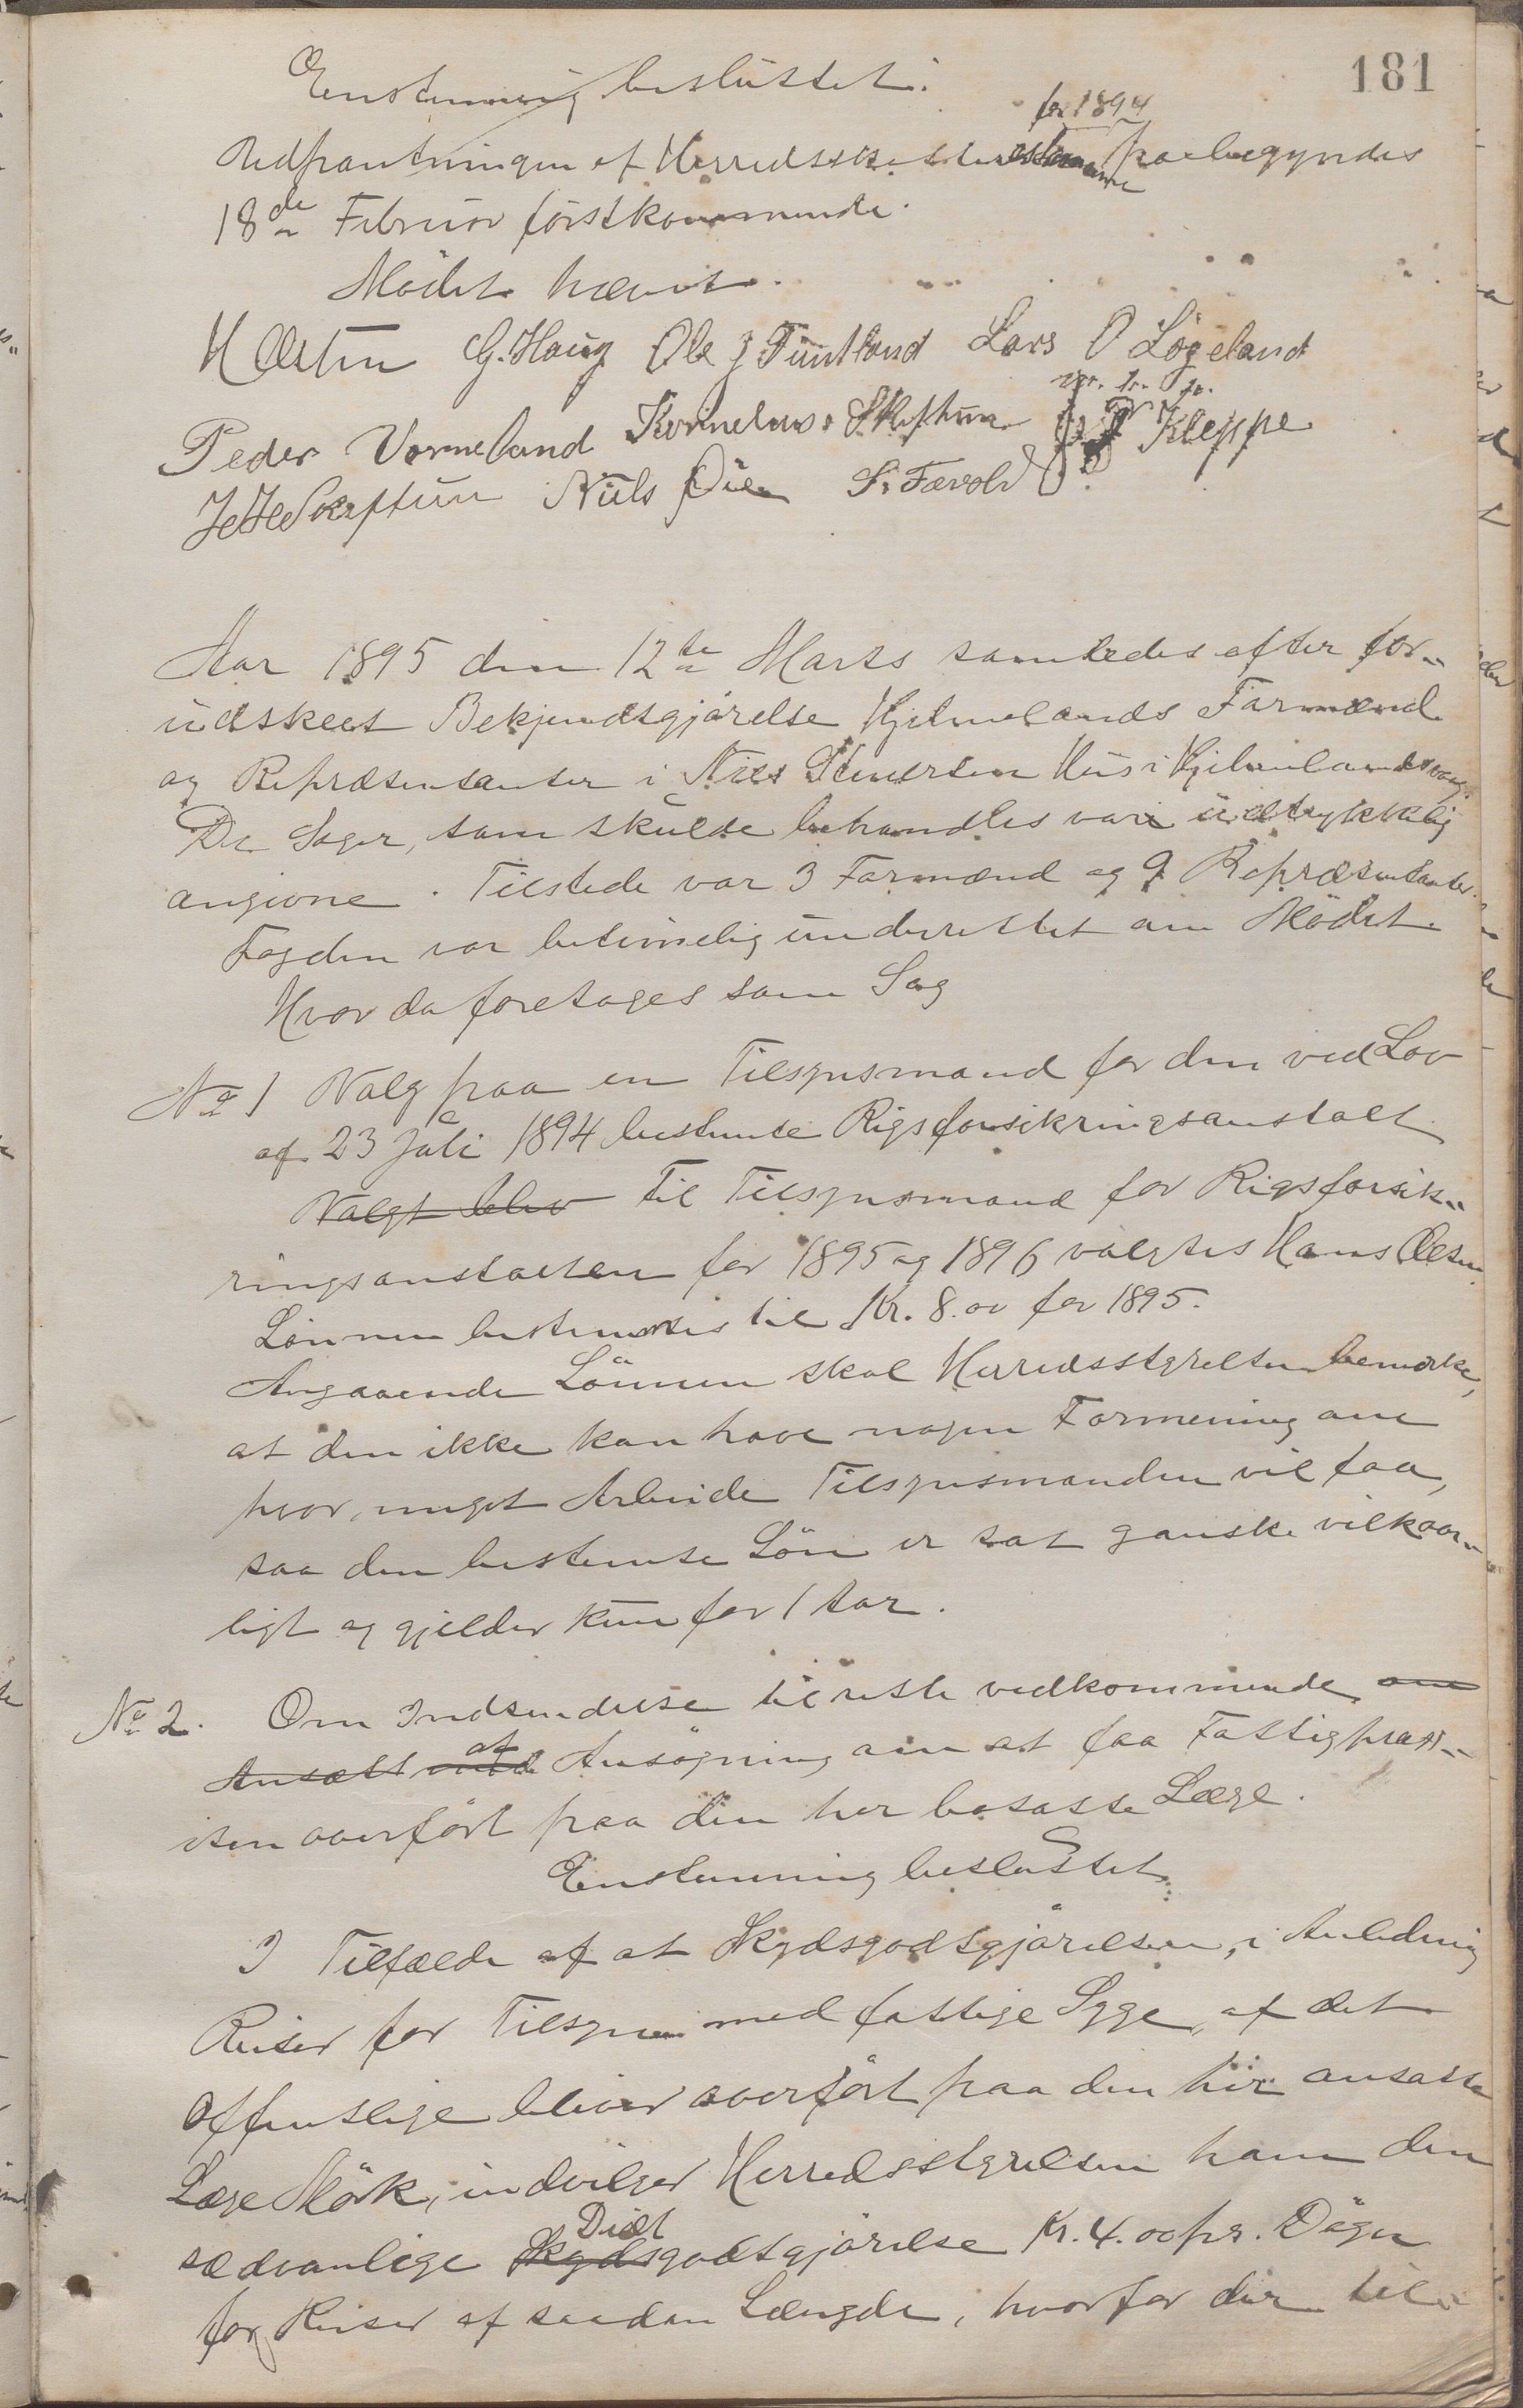 181
Enstemmig besluttet:
for 1894
Udpantningen af Herredsskatterestancerne paabegyndes
18de Februar förstkommende.
Mödet hævet.
H Østen G. Haug Ole J Tuntland Lars O Lögeland
Peder Vormeland Kornelius Skiftun O P Kleppe
m. f. P.
Skiftun Niels Øien S. Førvold
Aar 1895 den 12te Marts samledes efter for-
udskeet Bekjendtgjörelse Hjelmelands Formænd
og Repræsentanter i Niels Stenersen Hus i Hjelmelandsvaag.
De Sager, som skulde behandles var udtrykkelig
angivne. Tilstede var 3 Formænd og 9 Repræsentanter.
Fogden var betimelig underrettet om Mödet.
Hvor da foretages som Sag
No 1 Valg paa en Tilsynsmand for den ved Lov
af 23 Juli 1894 bestemte Rigsforsikringsanstalt
Valgt blev Til Tilsynsmand for Rigsforsik-
ringsanstalten for 1895 og 1896 valgtes Hans Østen.
Lönnen bestemtes til Kr. 8.00 for 1895.
Angaaende Lönnen skal Herredsstyrelsen bemærke,
at den ikke kan have nogen Formening om
hvor meget Arbeide Tilsynsmanden vil faa,
saa den bestemte Lön er sat ganske vilkaar-
ligt og gjelder kun for 1 Aar.
No 2. Om Indsendelse til rette vedkommende om
at
Ansætt Ansögning om at faa Fattigprax-
isen overfört paa den her bosatte Læge.
Enstemmig besluttet:
I Tilfælde af at Skydsgodtgjörelsen, i Anledning
Reiser for Tilsyn med fattige Syge, af det
Offentlige bliver overfört paa den her ansatte
Læge Mörk, indvilger Herredsstyrelsen ham den
Diæt
sædvanlige Skydsgodtgjörelse Kr. 4.00 pr. Dögn
for Reiser af saadan Længde, hvorfor der til-